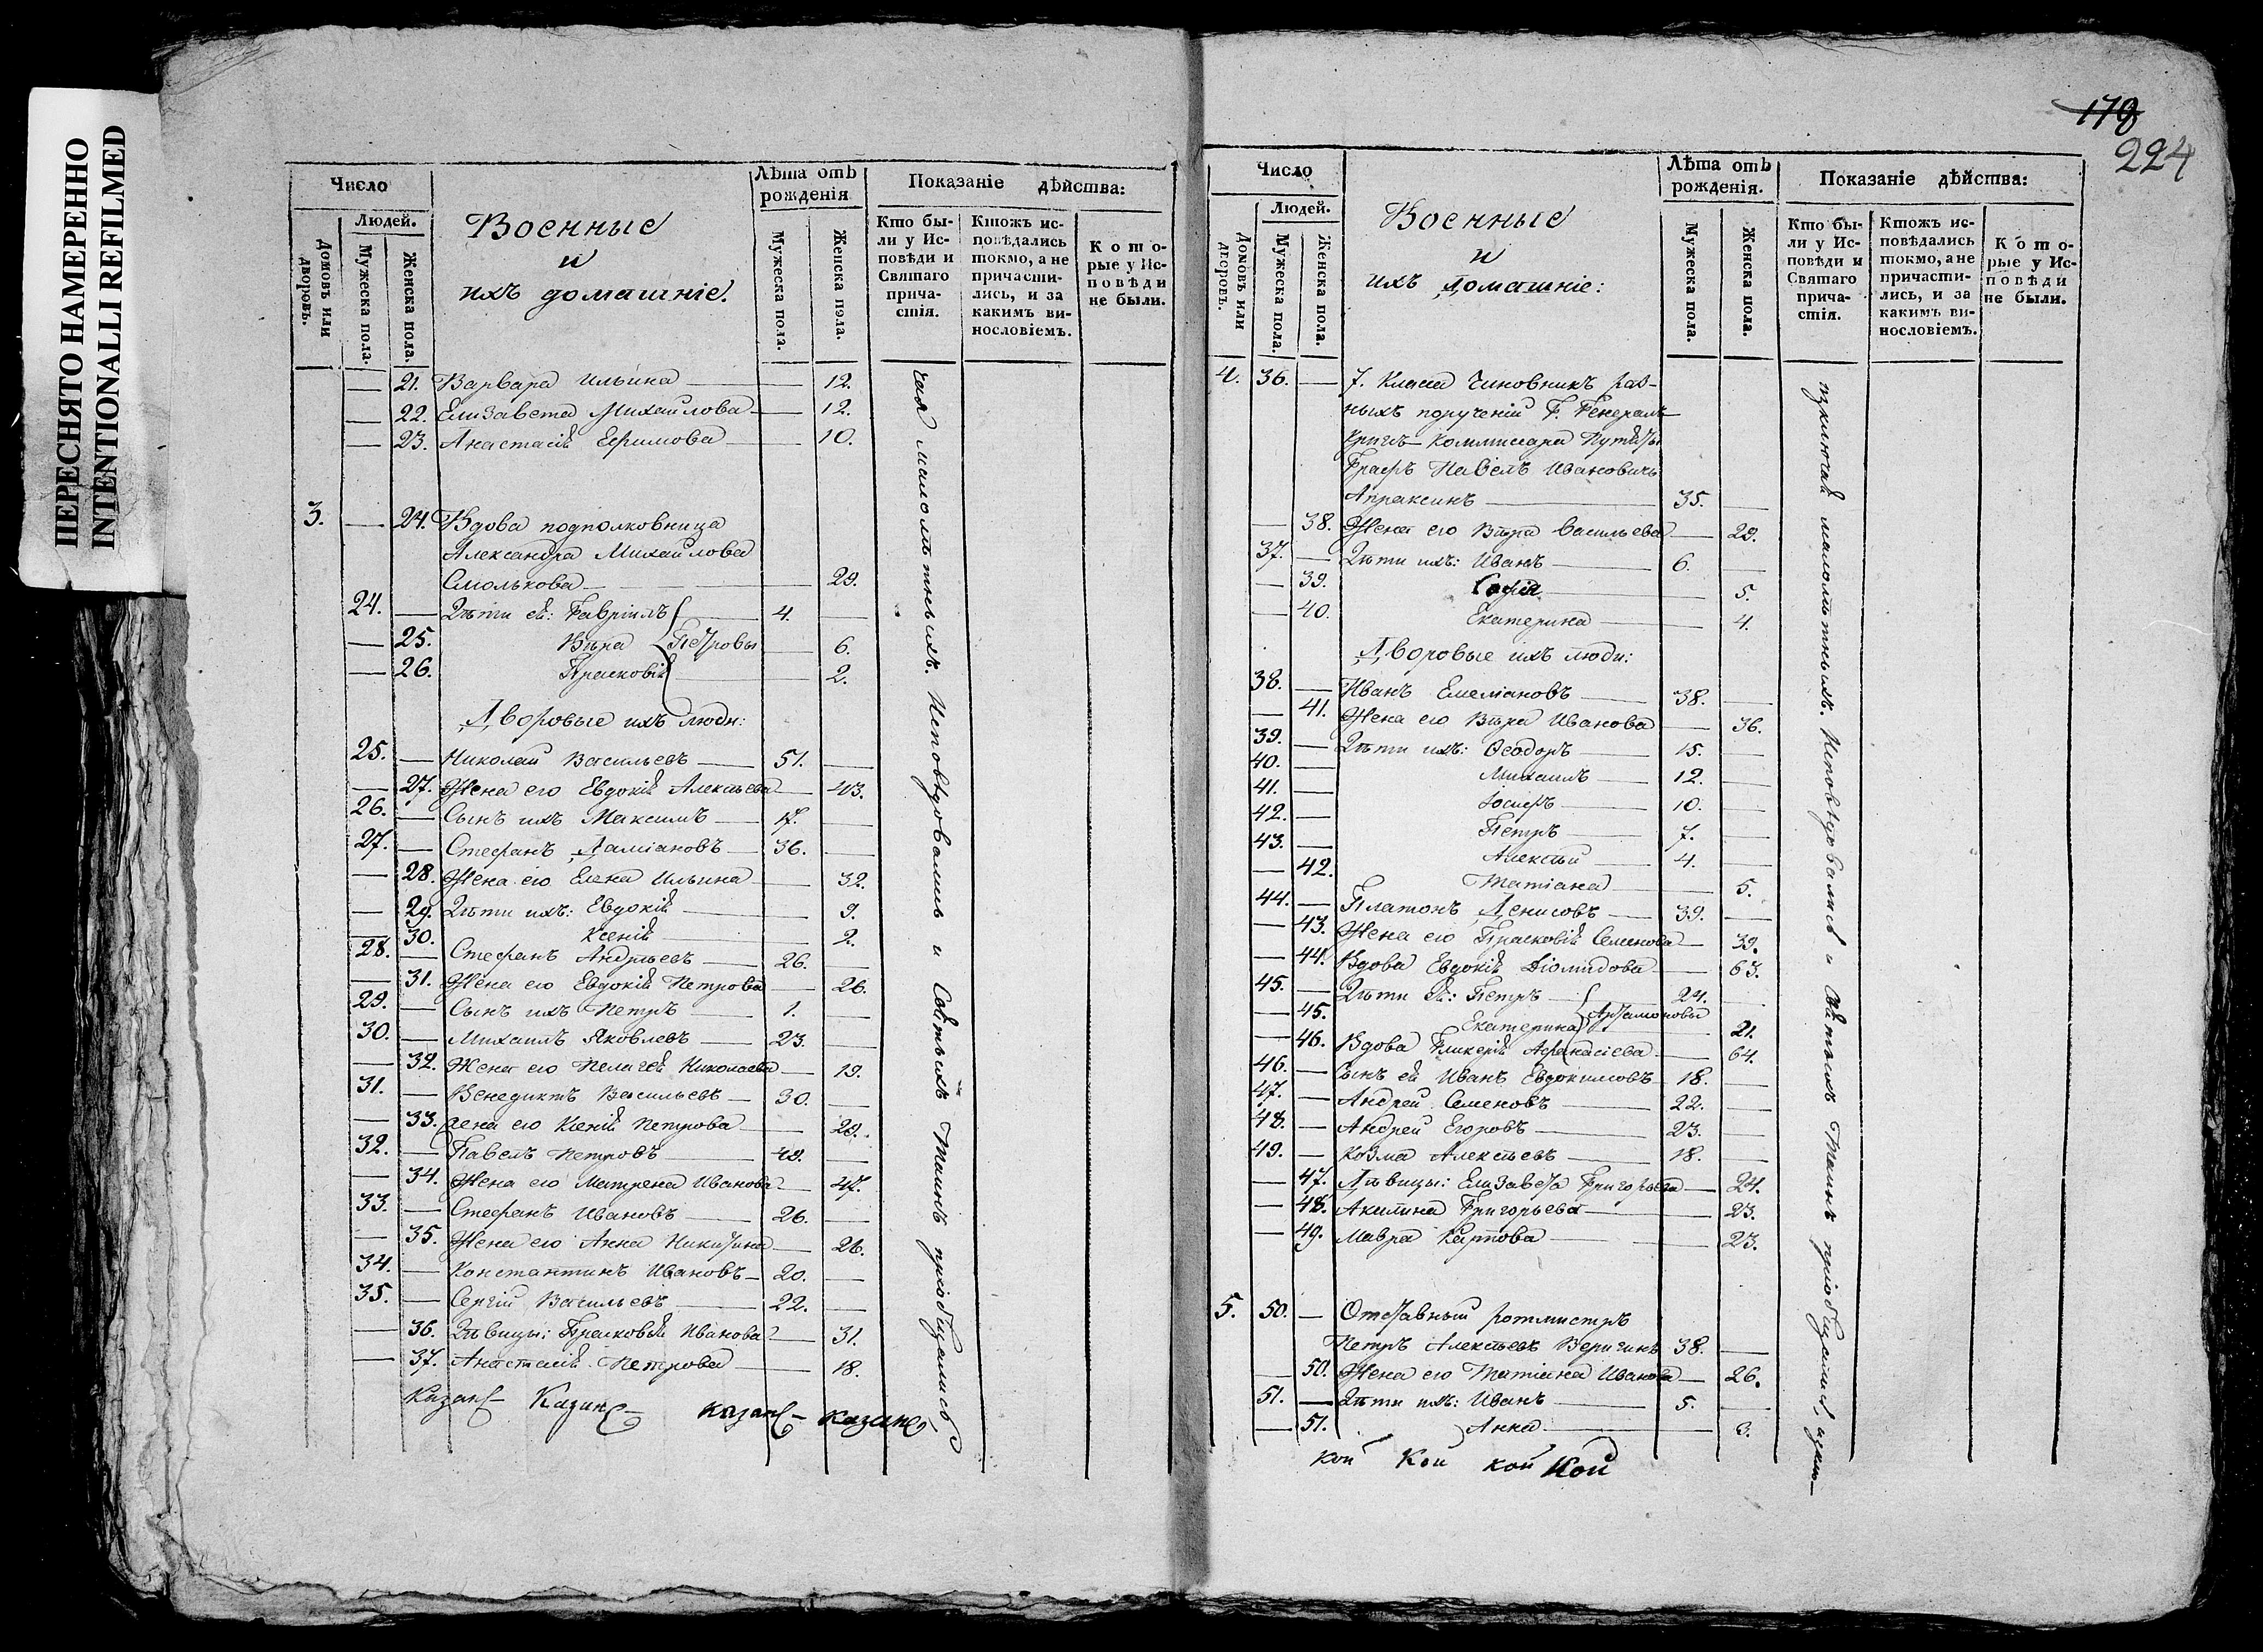 ПЕРЕСНЯТО НАМЕРЕННО
INTENTIONALLI REFILMED
Число
Людей.
Домовъ или дворовъ.
Мужеска пола.
Женска пола.
Военные
и
ихъ домашніе.
Лѣта отъ рожденія
Мужеска пола.
Женска пола.
Показаніе дѣйства:
Кто бы-
ли у Ис-
повѣди и
Святаго
прича-
стія.
Ктожъ ис-
повѣдались
токмо, а не
причасти-
лись, и за
какимъ ви-
нословіемъ.
Кото-
рые у Ис-
повѣди
не были.
— 21. Варвара Ильина — 12.
— 22. Елизавета Михайлова — 12.
— 23. Анастасія Ефимова — 10.
3. — 24. Вдова подполковница
Александра Михайлова
Смолькова — 29.
24. — Дѣти ея: Гавріилъ — 4. —
— 25. Вѣра Петровы — 6.
— 26. Прасковія — 2.
Дворовые ихъ люди:
25. — Николай Васильевъ — 51. —
— 27. Жена его Евдокія Алексѣева — 43.
26. — Сынъ ихъ Максимъ — 17. —
27. — Стефанъ Даміановъ — 36. —
— 28. Жена его Елена Ильина — 32.
— 29. Дѣти ихъ: Евдокія — 9.
— 30. Ксенія — 2.
28. — Стефанъ Андреевъ — 26. —
— 31. Жена его Евдокія Петрова — 26.
29. — Сынъ ихъ Петръ — 1. —
30. — Михаилъ Яковлевъ — 23. —
— 32. Жена его Пелагея Николаева — 19.
31. — Венедиктъ Васильевъ — 30. —
— 33. Жена его Ксенія Петрова — 29.
32. — Павелъ Петровъ — 48. —
— 34. Жена его Матрена Иванова — 47.
33. — Стефанъ Ивановъ — 26. —
— 35. Жена его Анна Никитина — 26.
34. — Константинъ Ивановъ — 20. —
35. — Сергій Васильевъ — 22. —
— 36. Дѣвицы: Прасковія Иванова — 31.
— 37. Анастасія Петрова — 18.
чая малолѣтныхъ. Исповѣдовались и Святыхъ Таинъ пріобщались
казанс— Казанс— казанс— казанс
178
224
Число
Людей.
Домовъ или дворовъ.
Мужеска пола.
Женска пола.
Военные
и
ихъ домашніе:
Лѣта отъ рожденія.
Мужеска пола.
Женска пола.
Показаніе дѣйства:
Кто бы-
ли у Ис-
повѣди и
Святаго
прича-
стія.
Ктожъ ис-
повѣдались
токмо, а не
причасти-
лись, и за
какимъ ви-
нословіемъ.
Кото-
рые у Ис-
повѣди
не были.
4. 36. — 7. Класса Чиновникъ раз-
ныхъ порученій Г. Генералъ
Кригсъ-Коммисара Путяты
Графъ Павелъ Ивановичъ
Апраксинъ — 35. —
— 38. Жена его Вѣра Васильева — 29.
37. — Дѣти ихъ: Иванъ — 6. —
— 39. Софія — 5.
— 40. Екатерина — 4.
Дворовые ихъ люди:
38. — Иванъ Емеліановъ — 38. —
— 41. Жена его Вѣра Иванова — 36.
39. — Дѣти ихъ: Ѳеодоръ — 15. —
40. — Михаилъ — 12. —
41. — Іосифъ — 10. —
42. — Петръ — 7. —
43. — Алексѣй — 4. —
— 42. Татіана — 5.
44. — Платонъ Денисовъ — 39. —
— 43. Жена его Прасковія Семенова — 39.
— 44. Вдова Евдокія Діомидова — 63.
45. — Дѣти ея: Петръ — 24. —
— 45. Екатерина Артамоновы — 21.
— 46. Вдова Гликерія Афанасіева — 64.
46. — Сынъ ея Иванъ Евдокимовъ — 18. —
47. — Андрей Семеновъ — 22. —
48. — Андрей Егоровъ — 23. —
49. — Козма Алексѣевъ — 18. —
— 47. Дѣвицы: Елизавета Григорьева — 24.
— 48. Акилина Григорьева — 23.
— 49. Мавра Карпова — 23.
5. 50. — Отставный ротмистръ
Петръ Алексѣевъ Веригинъ 38. —
— 50. Жена его Татіана Иванова — 26.
51. — Дѣти ихъ: Иванъ — 5. —
— 51. Анна — 3.
изключая малолѣтныхъ. Исповѣдовались и Святыхъ Таинъ пріобщались, изклю—
кой Кой кой Кой